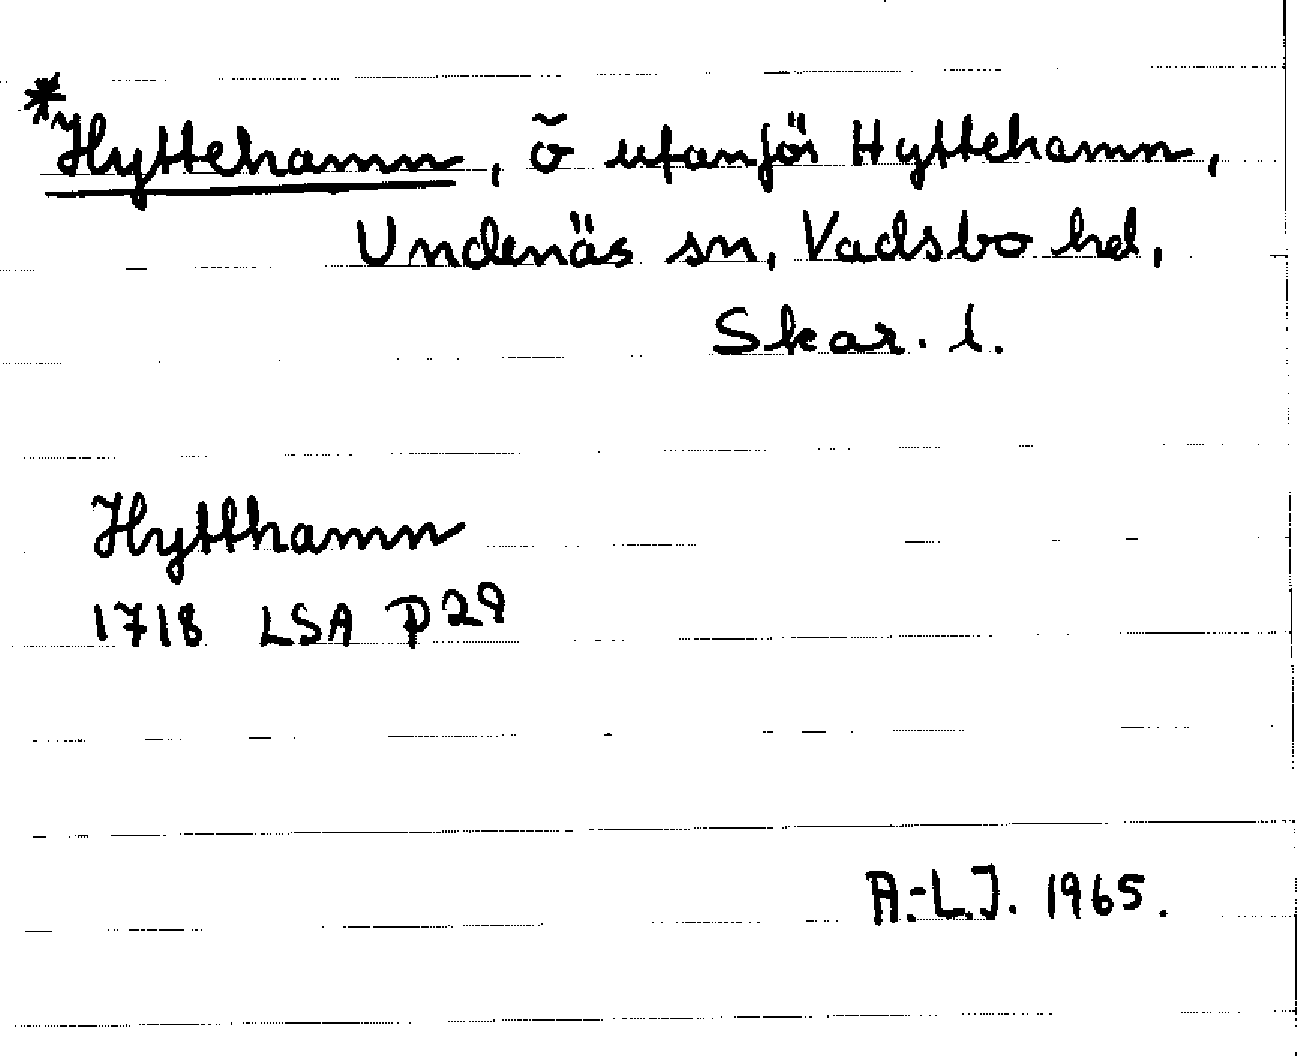 *Hyttehamn, ö utanför Hyttehamn,
Undenäs sn, Vadsbo hd,
Skar. l.
Hytthamn
1718 LSA P29
A.-L.J. 1965.